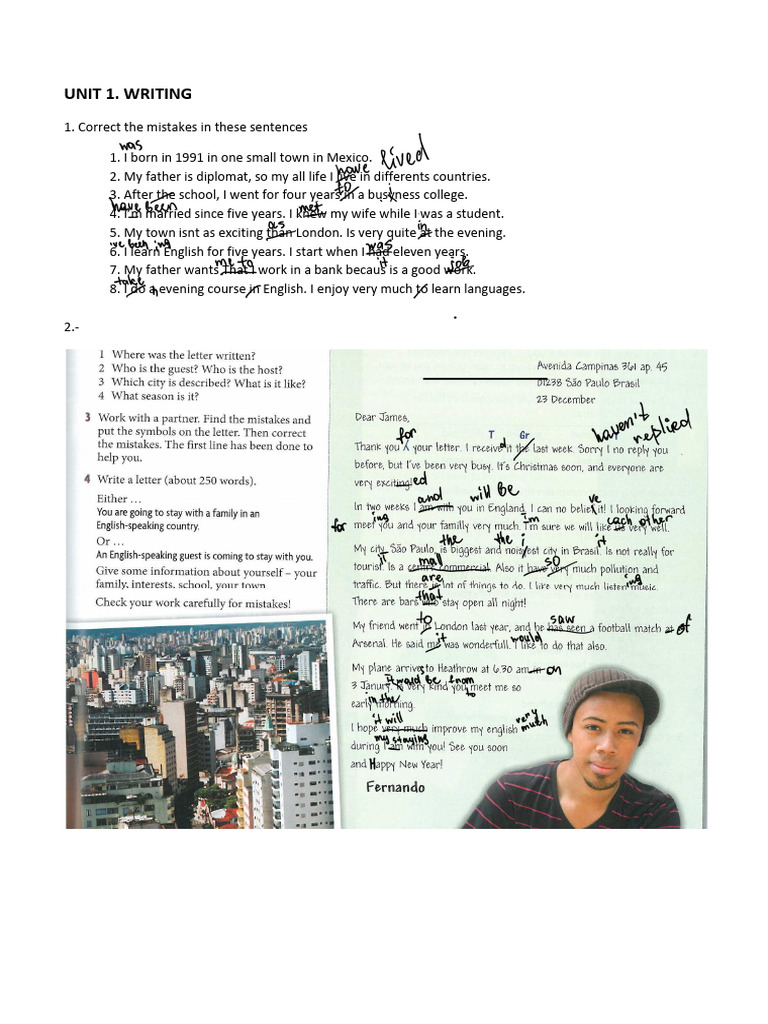 UNIT 1. WRITING
1. Correct the mistakes in these sentences
was
1. I born in 1991 in one small town in Mexico.
have lived
2. My father is diplomat, so my all life I live in differents countries.
to i
3. After the school, I went for four years in a busyness college.
have been met
4. I'm married since five years. I knew my wife while I was a student.
as in
5. My town isnt as exciting than London. Is very quite at the evening.
i've been ing was
6. I learn English for five years. I start when I had eleven years.
me to it job
7. My father wants that I work in a bank becaus is a good work.
take n
8. I do a evening course in English. I enjoy very much to learn languages.
2.-
1 Where was the letter written?
2 Who is the guest? Who is the host?
3 Which city is described? What is it like?
4 What season is it?
3 Work with a partner. Find the mistakes and
put the symbols on the letter. Then correct
the mistakes. The first line has been done to
help you.
4 Write a letter (about 250 words).
Either …
You are going to stay with a family in an
English-speaking country.
Or …
An English-speaking guest is coming to stay with you.
Give some information about yourself – your
family, interests, school, your town
Check your work carefully for mistakes!
Avenida Campinas 361 ap. 45
01238 São Paulo Brasil
23 December
Dear James,
for T Gr haven't replied
Thank you ⁁ your letter. I receive d it the last week. Sorry I no reply you
before, but I've been very busy. It's Christmas soon, and everyone are
very exciting! ed
and will Be ve
In two weeks I am with you in England. I can no belief it! I looking forward
for ing I'm each other
meet you and your familly very much. I'm sure we will like us very well.
the the i it
My city, São Paulo, is biggest and noisyest city in Brasil. Is not really for
it mall so
tourist. Is a centre commercial. Also it have very much pollution and
are ing
traffic. But there is lot of things to do. I like very much listen music.
that
There are bars who stay open all night!
to saw
My friend went in London last year, and he has seen a football match at of
it would
Arsenal. He said me was wonderfull. I like to do that also.
My plane arrive s to Heathrow at 6.30 am in on
it would Be from
3 Janury. Is very kind you meet me so
in the to
early morning.
it will very much
I hope very much improve my english
my staying
during I am with you! See you soon
and Happy New Year!
Fernando